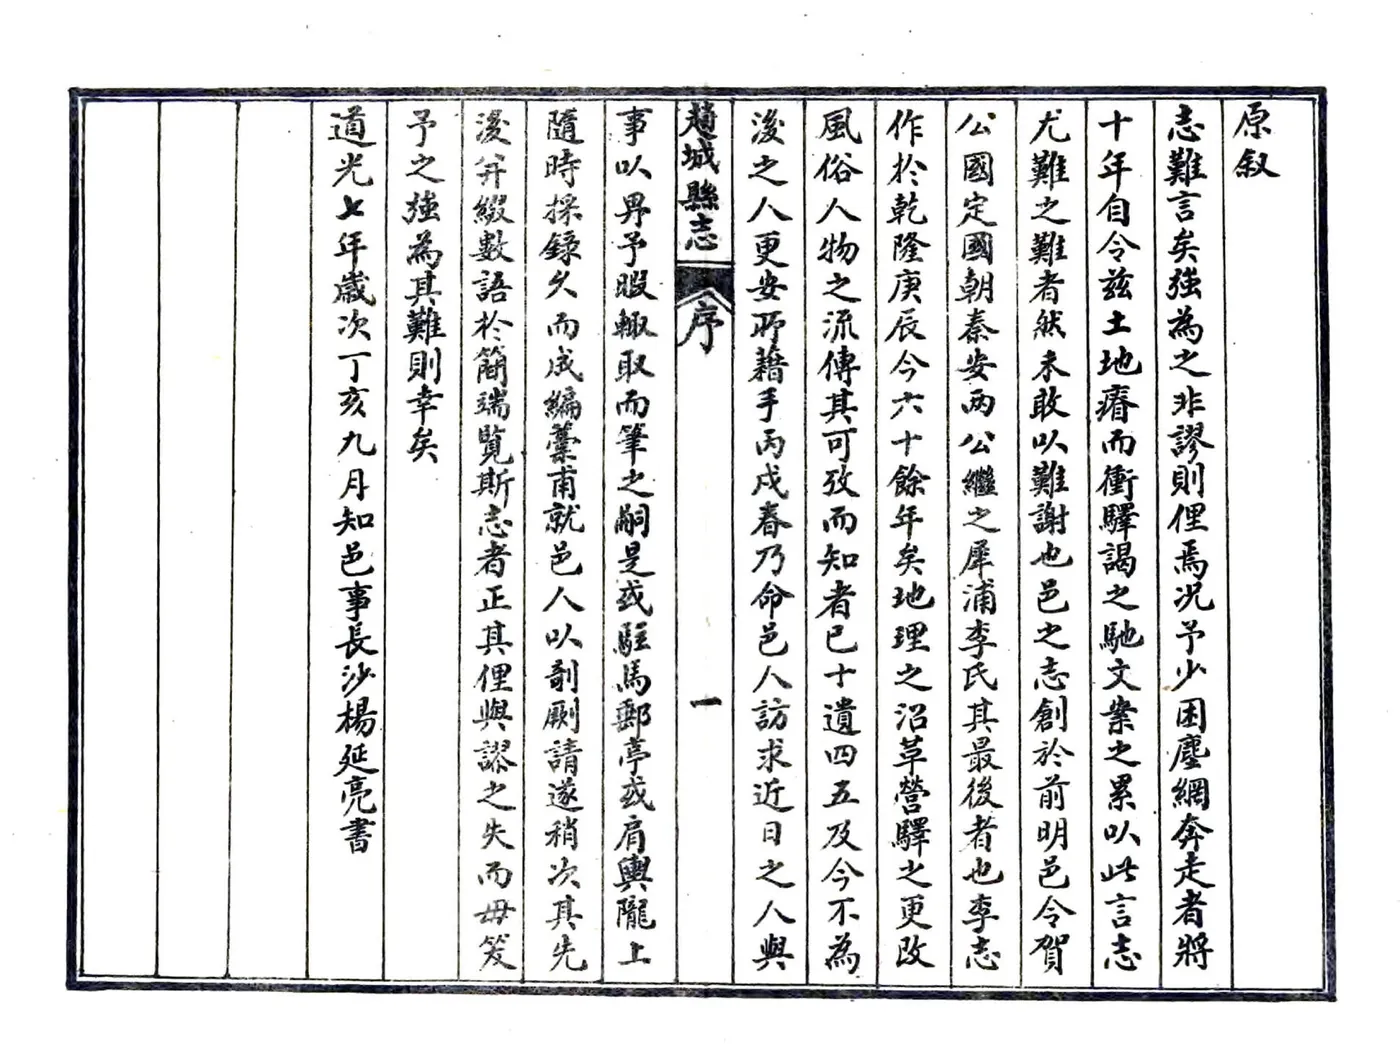 原叙
志難言矣強為之非謬則俚焉况予少困塵網奔走者將
十年自令茲土地瘠而衝驛謁之馳文案之累以此言志
尤難之難者然未敢以難謝也邑之志創於前明邑令賀
公國定國朝秦安兩公繼之犀浦李氏其最後者也李志
作於乾隆庚辰今六十餘年矣地理之沿革營驛之更改
風俗人物之流傳其可攷而知者已十遺四五及今不為
後之人更安所藉手丙戌春乃命邑人訪求近日之人與
趙城縣志
序
一
事以畀予暇輙取而筆之嗣是或駐馬郵亭或肩輿隴上
隨時採錄久而成編藁甫就邑人以剞劂請遂稍次其先
後并綴數語於簡端覽斯志者正其俚與謬之失而毋笑
予之強為其難則幸矣
道光七年歲次丁亥九月知邑事長沙楊延亮書